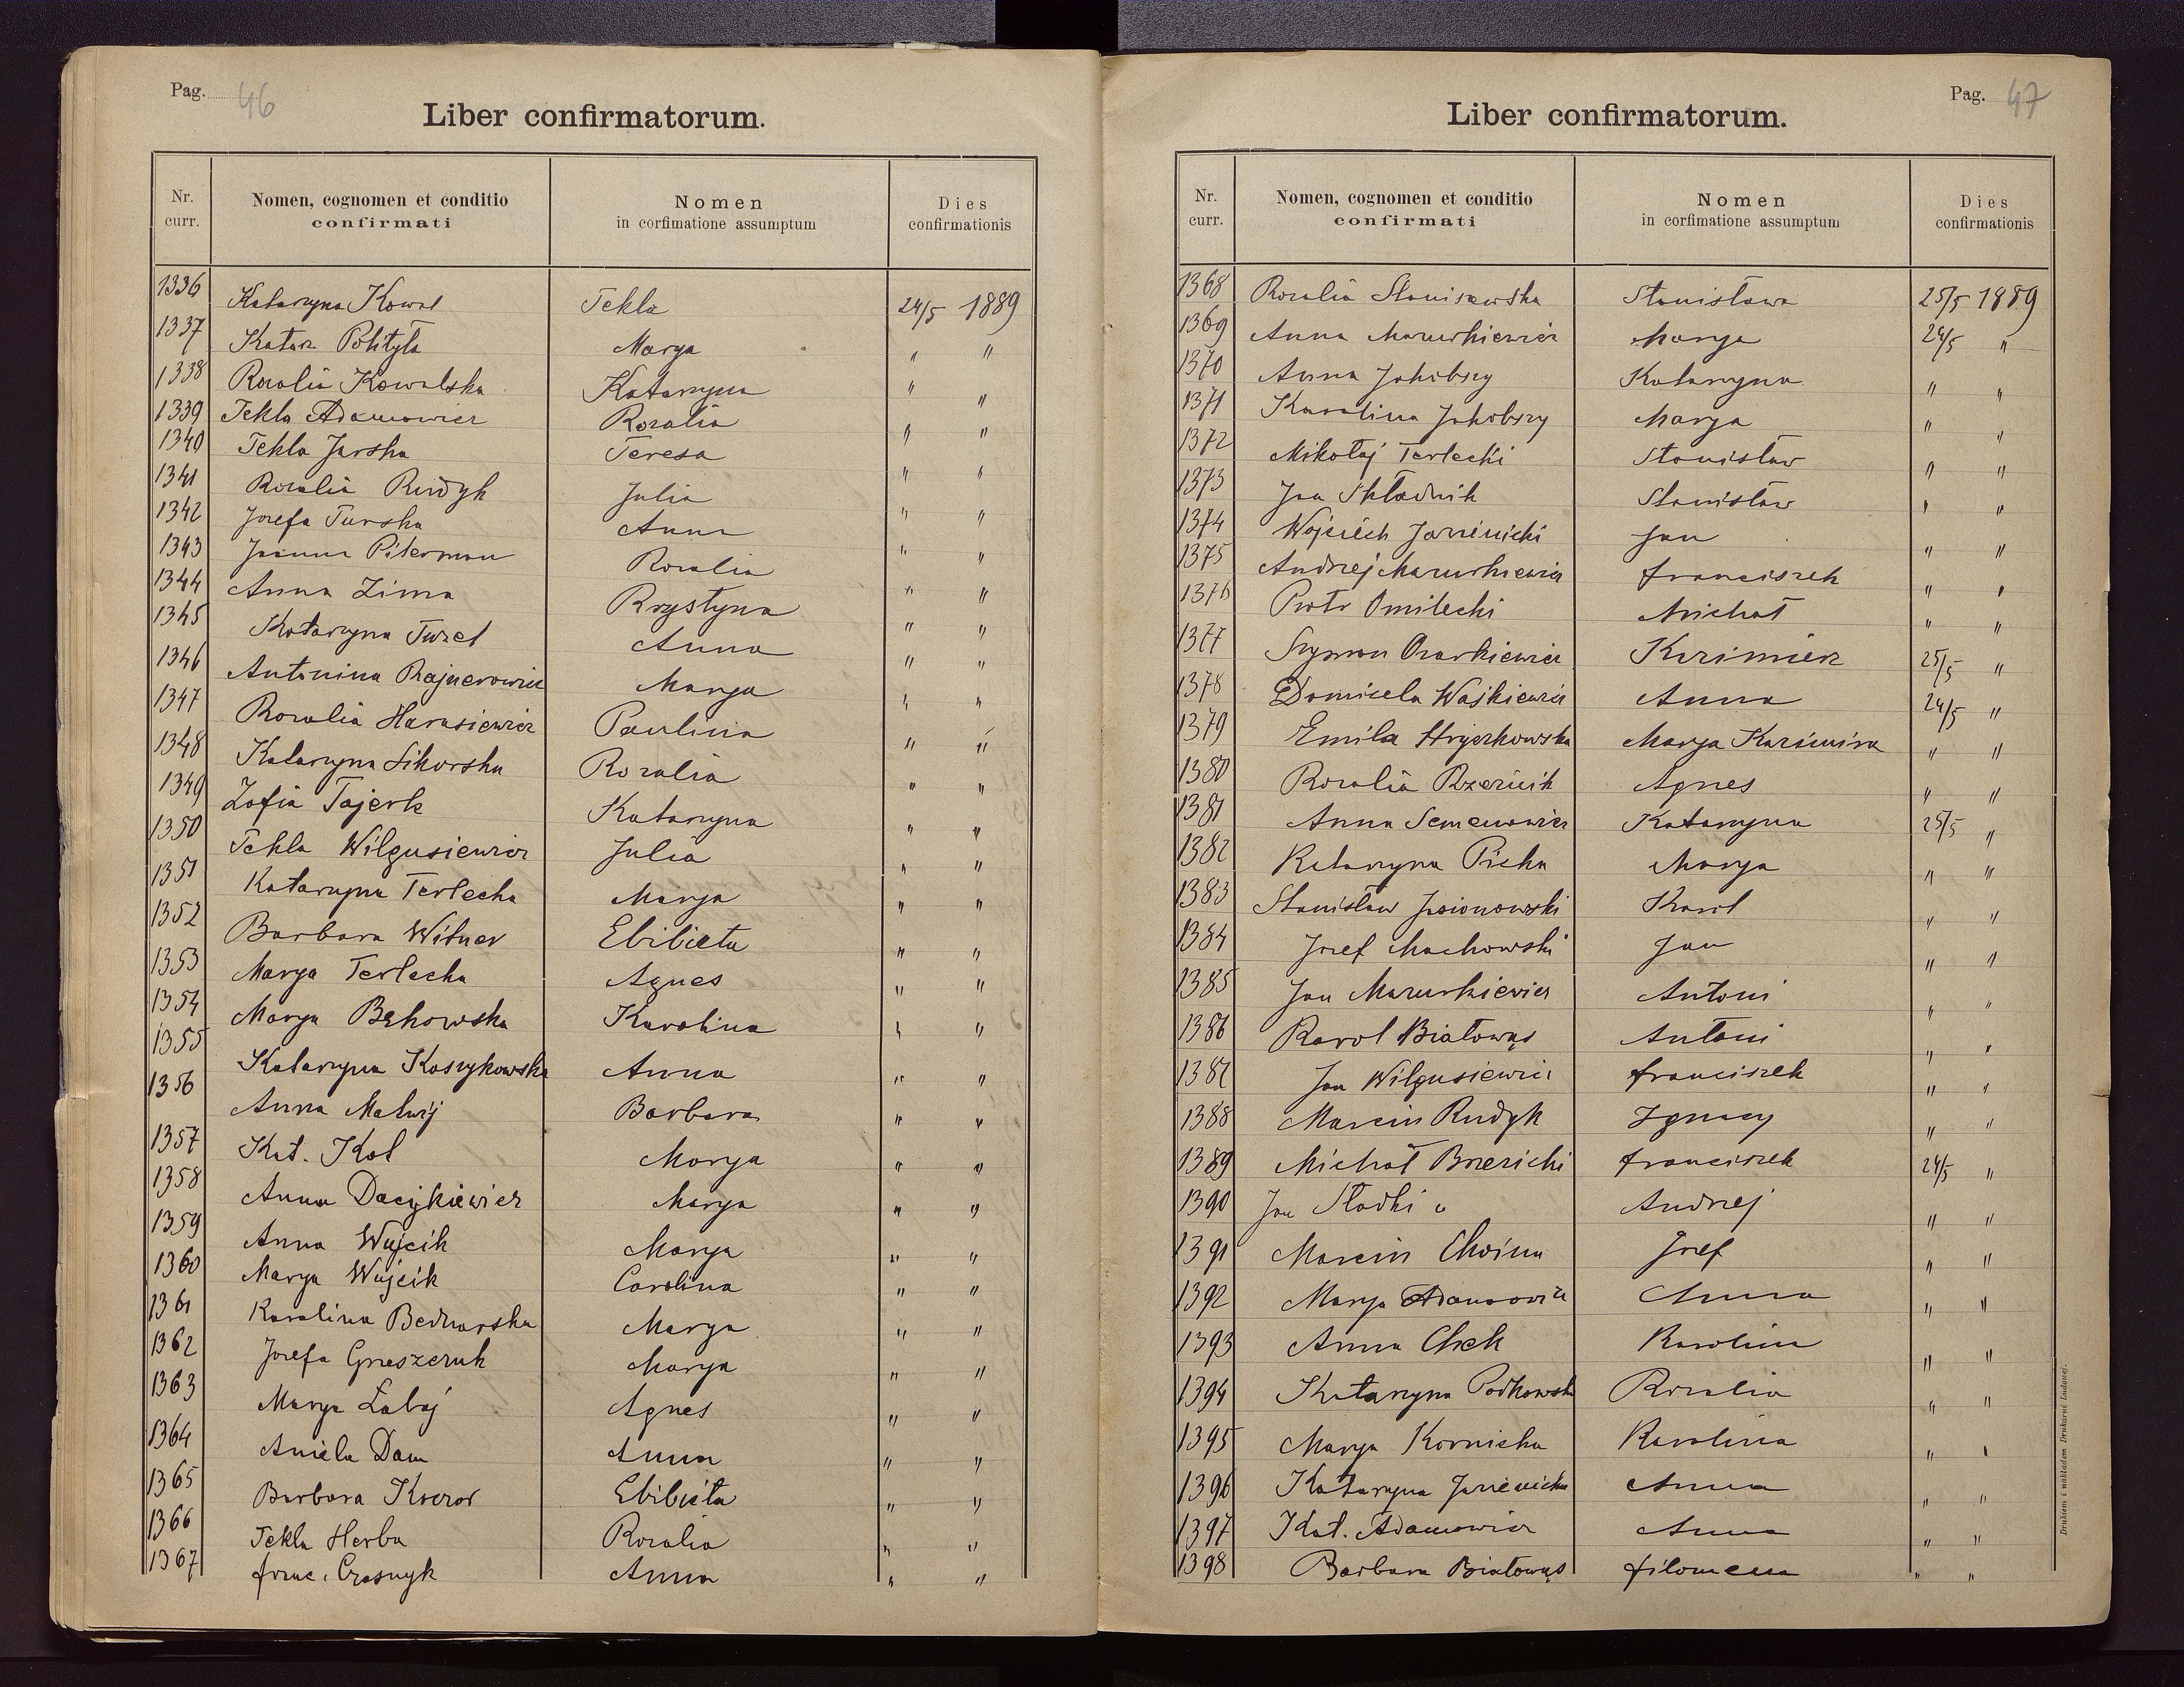 Pag. 46
Liber confirmatorum.
Nr. curr. Nomen, cognomen et conditio confirmati Nomen in corfimatione assumptum Dies confirmationis
1336 Katarzyna Kowal Tekla 24/5 1889
1337 Katarz Polityła Marya " "
1338 Rozalia Kowalska Katarzyna " "
1339 Tekla Adamowicz Rozalia " "
1340 Tekla Jarska Teresa " "
1341 Rozalia Rudyk Julia " "
1342 Józefa Turska Anna " "
1343 Joanna Piterman Rozalia " "
1344 Anna Zima Krystyna " "
1345 Katarzyna Tuzel Anna " "
1346 Antonina Rajnerowicz Marya " "
1347 Rozalia Harasiewicz Paulina " "
1348 Katarzyna Sikorska Rozalia " "
1349 Zofia Tajerk Katarzyna " "
1350 Tekla Wilgusiewicz Julia " "
1351 Katarzyna Terlecka Marya " "
1352 Barbara Witner Elżbieta " "
1353 Marya Terlecka Agnes " "
1354 Marya Bękowska Karolina " "
1355 Katarzyna Koszykowska Anna " "
1356 Anna Matwij Barbara " "
1357 Kat. Kol Marya " "
1358 Anna Dacijkiewicz Marya " "
1359 Anna Wujcik Marya " "
1360 Marya Wujcik Carolina " "
1361 Karolina Bednarska Marya " "
1362 Józefa Greszczuk Marya " "
1363 Marya Łabaj Agnes " "
1364 Aniela Dam Anna " "
1365 Barbara Elżbieta " "
1366 Tekla Herba Rozalia " "
1367 Franc. Czasnyk Anna " "
Pag. 47
Liber confirmatorum.
Nr. curr. Nomen, cognomen et conditio confirmati Nomen in corfimatione assumptum Dies confirmationis
1368 Rozalia Stanisewska Stanisława 25/5 1889
1369 Anna Mazurkiewicz Marya 24/5 "
1370 Anna Jakóbszy Katarzyna " "
1371 Karolina Jakóbszy Marya " "
1372 Mikołaj Terlecki Stanisław " "
1373 Jan Składnik Stanisław " "
1374 Wojciech Jarzenicki Jan " "
1375 Andrzej Mazurkiewicz Franciszek " "
1376 Piotr Omilecki Michał " "
1377 Szymon Ozarkiewicz Kazimierz 25/5 "
1378 Domicela Waśkiewicz Anna 24/5 "
1379 Emila Hryczkowska Marya Kazimira " "
1380 Rozalia Rzeźnik Agnes " "
1381 Anna Semenowicz Katarzyna 25/5 "
1382 Katarzyna Picka Marya " "
1383 Stanisław Jasionowski Karol " "
1384 Józef Machowski Jan " "
1385 Jan Mazurkiewicz Antoni " "
1386 Karol Białowąs Antoni " "
1387 Jan Wilgusiewicz Franciszek " "
1388 Marcin Rudyk Ignacy " "
1389 Michał Brzezicki Franciszek 24/5 "
1390 Jan Sładki Andrzej " "
1391 Marcin Choina Józef " "
1392 Marya Adamowicz Anna " "
1393 Anna Chek Karolina " "
1394 Katarzyna Podkowska Rozalia " "
1395 Marya Kornicka Karolina " "
1396 Katarzyna Jarzenicka Anna " "
1397 Kat. Adamowicz Anna " "
1398 Barbara Białowąs Filomena " "
Drukiem i nakładem Drukarni Ludowej.